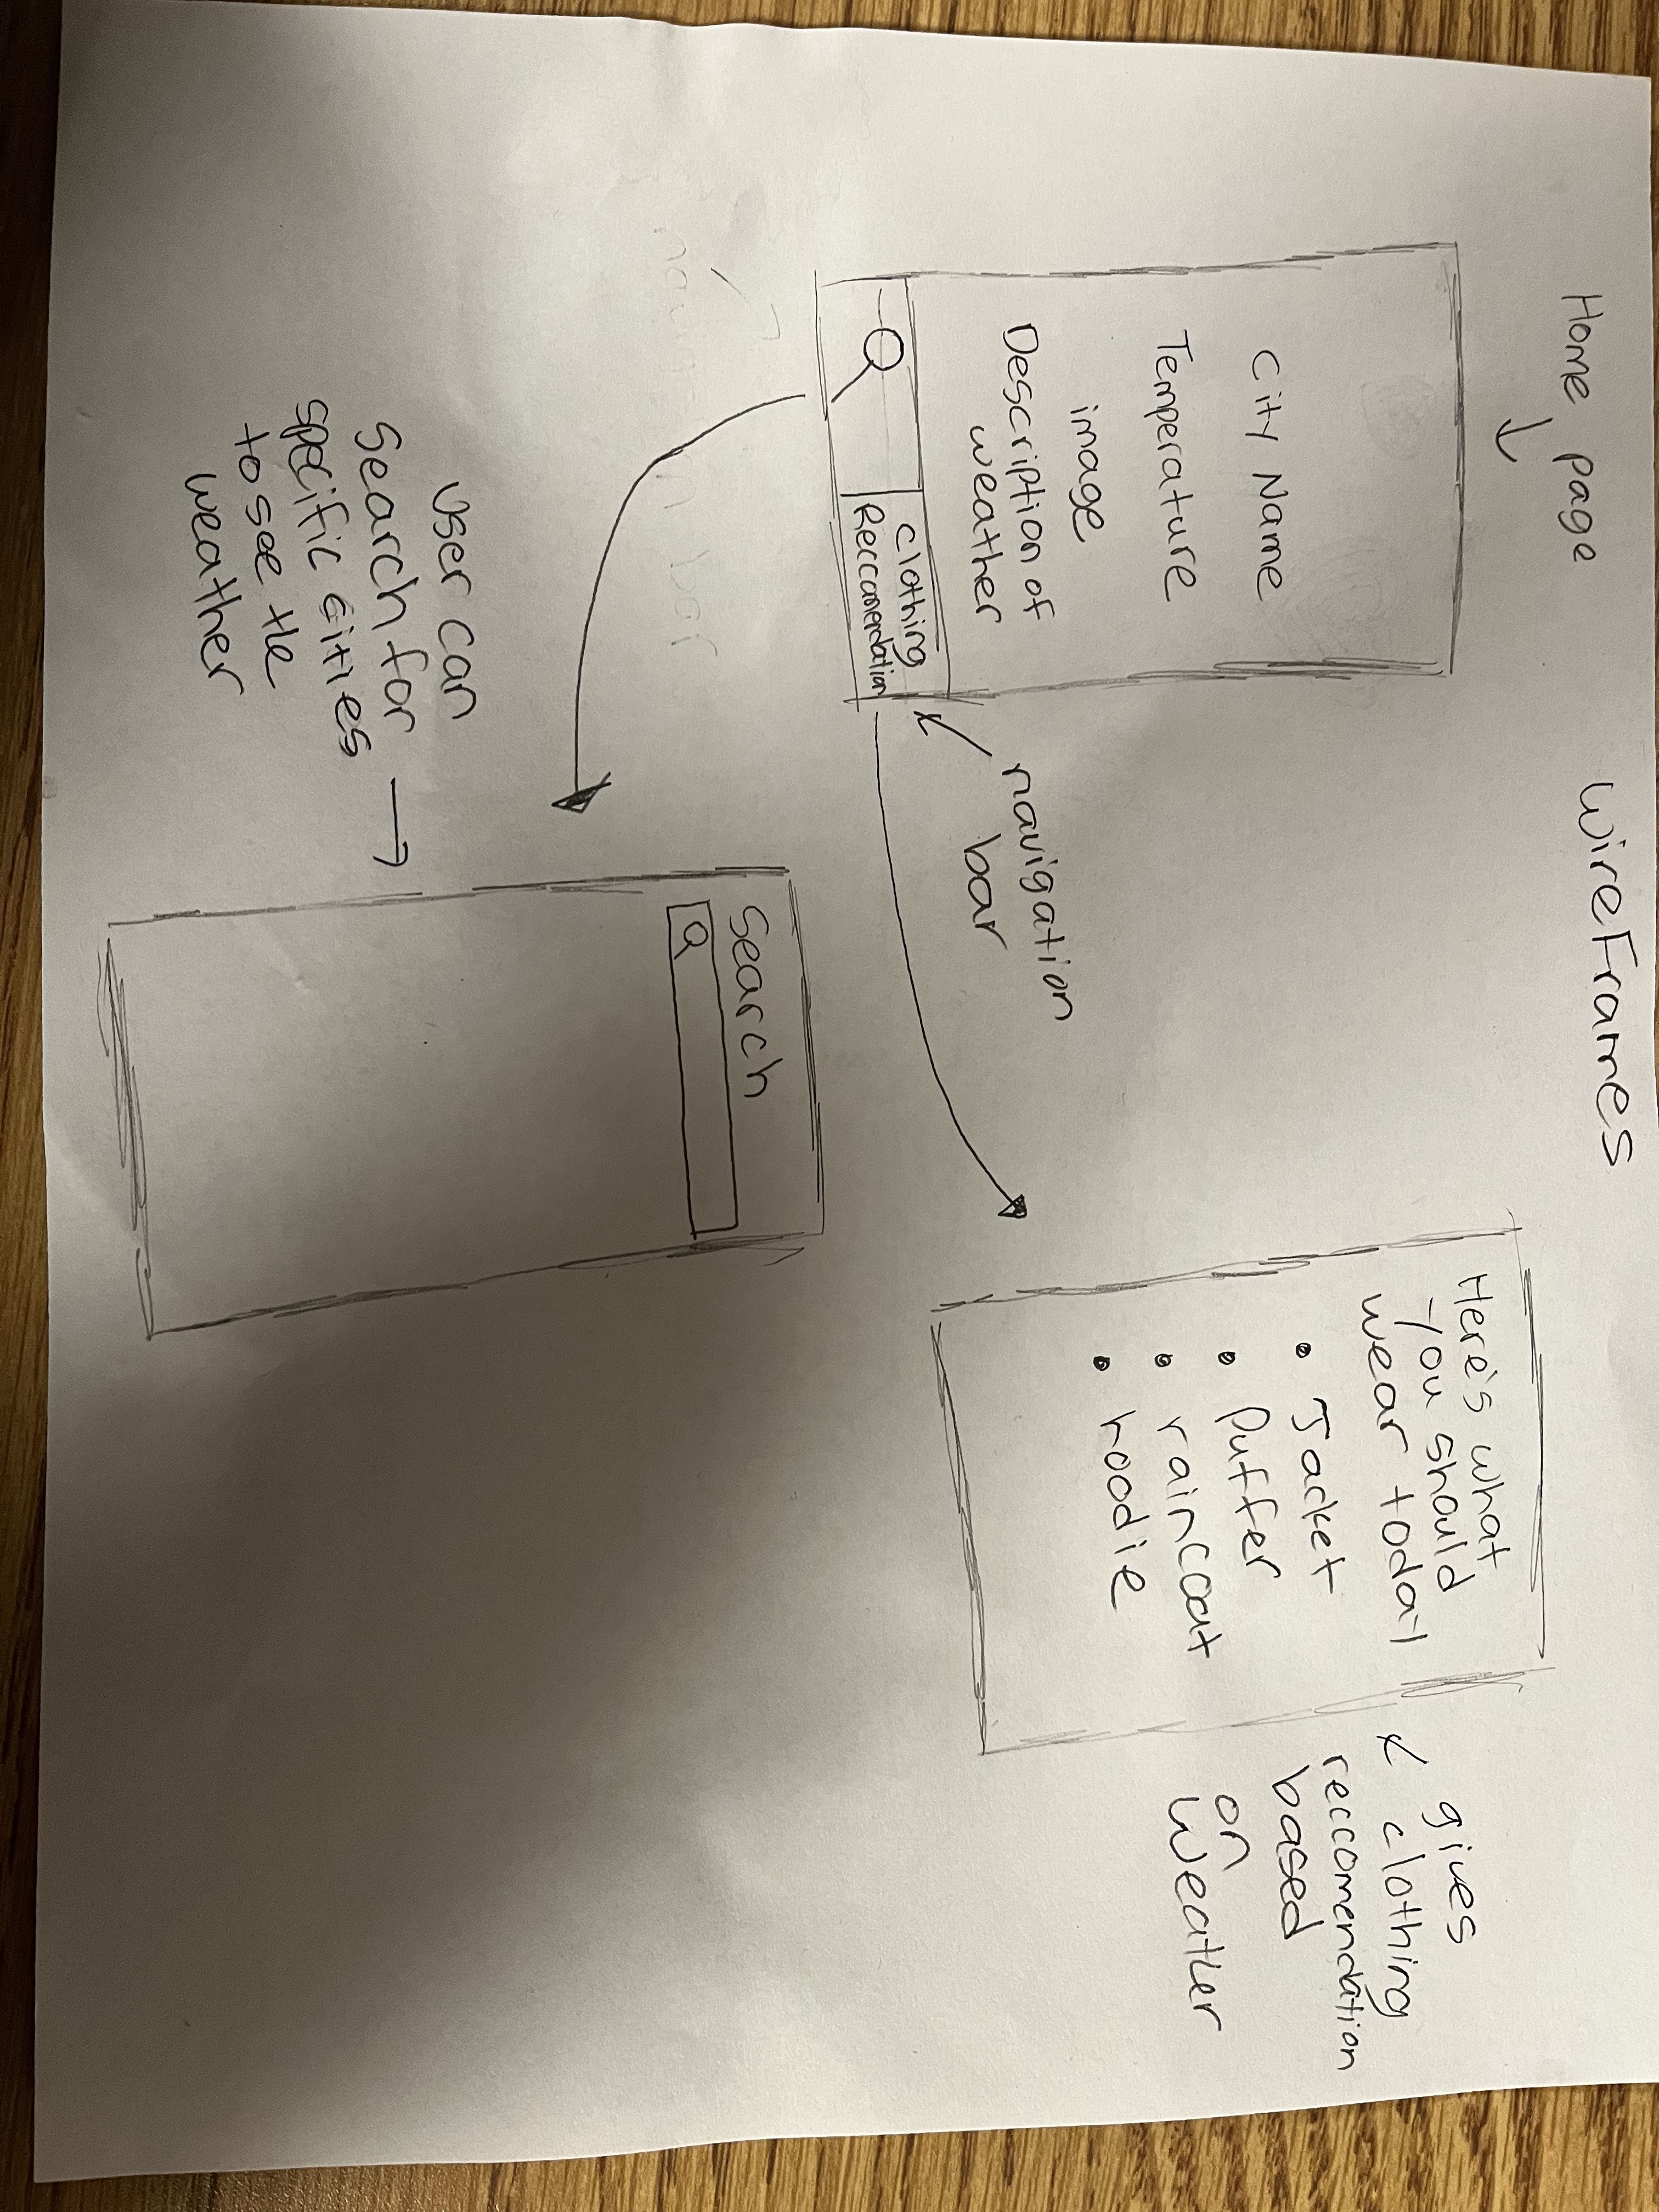 WireFrames
Home page
City Name
Temperature
image
Description of
weather
Clothing
Reccomendation
navigation
bar
Here's what
you should
wear today
• Jacket
• Puffer
• raincoat
• hoodie
gives
clothing
reccomendation
based
on
weather
navigation bar
Search
User can
Search for
specific cities
to see the
weather